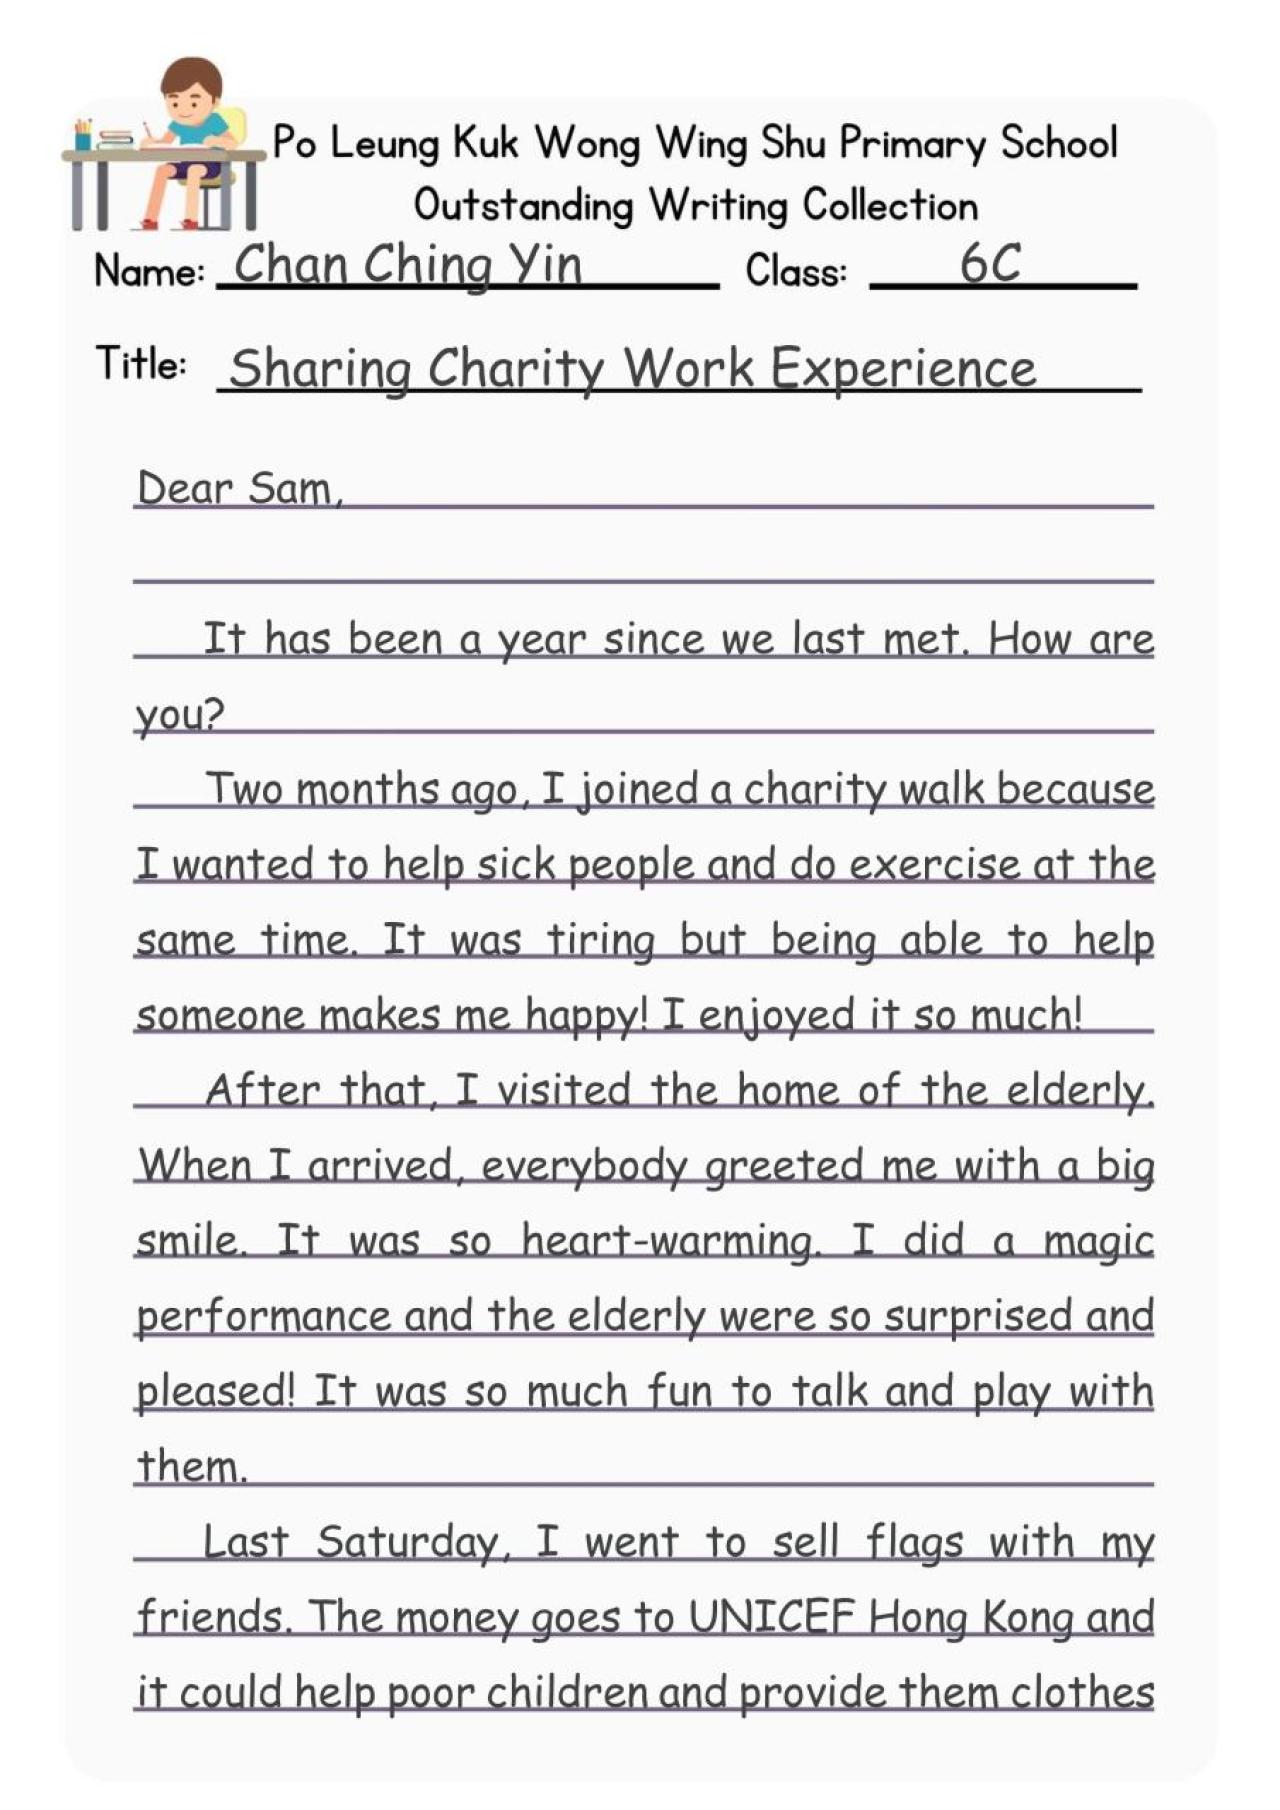 Po Leung Kuk Wong Wing Shu Primary School
Outstanding Writing Collection
Name: Chan Ching Yin Class: 6C
Title: Sharing Charity Work Experience
Dear Sam,
It has been a year since we last met. How are
you?
Two months ago, I joined a charity walk because
I wanted to help sick people and do exercise at the
same time. It was tiring but being able to help
someone makes me happy! I enjoyed it so much!
After that, I visited the home of the elderly.
When I arrived, everybody greeted me with a big
smile. It was so heart-warming. I did a magic
performance and the elderly were so surprised and
pleased! It was so much fun to talk and play with
them.
Last Saturday, I went to sell flags with my
friends. The money goes to UNICEF Hong Kong and
it could help poor children and provide them clothes